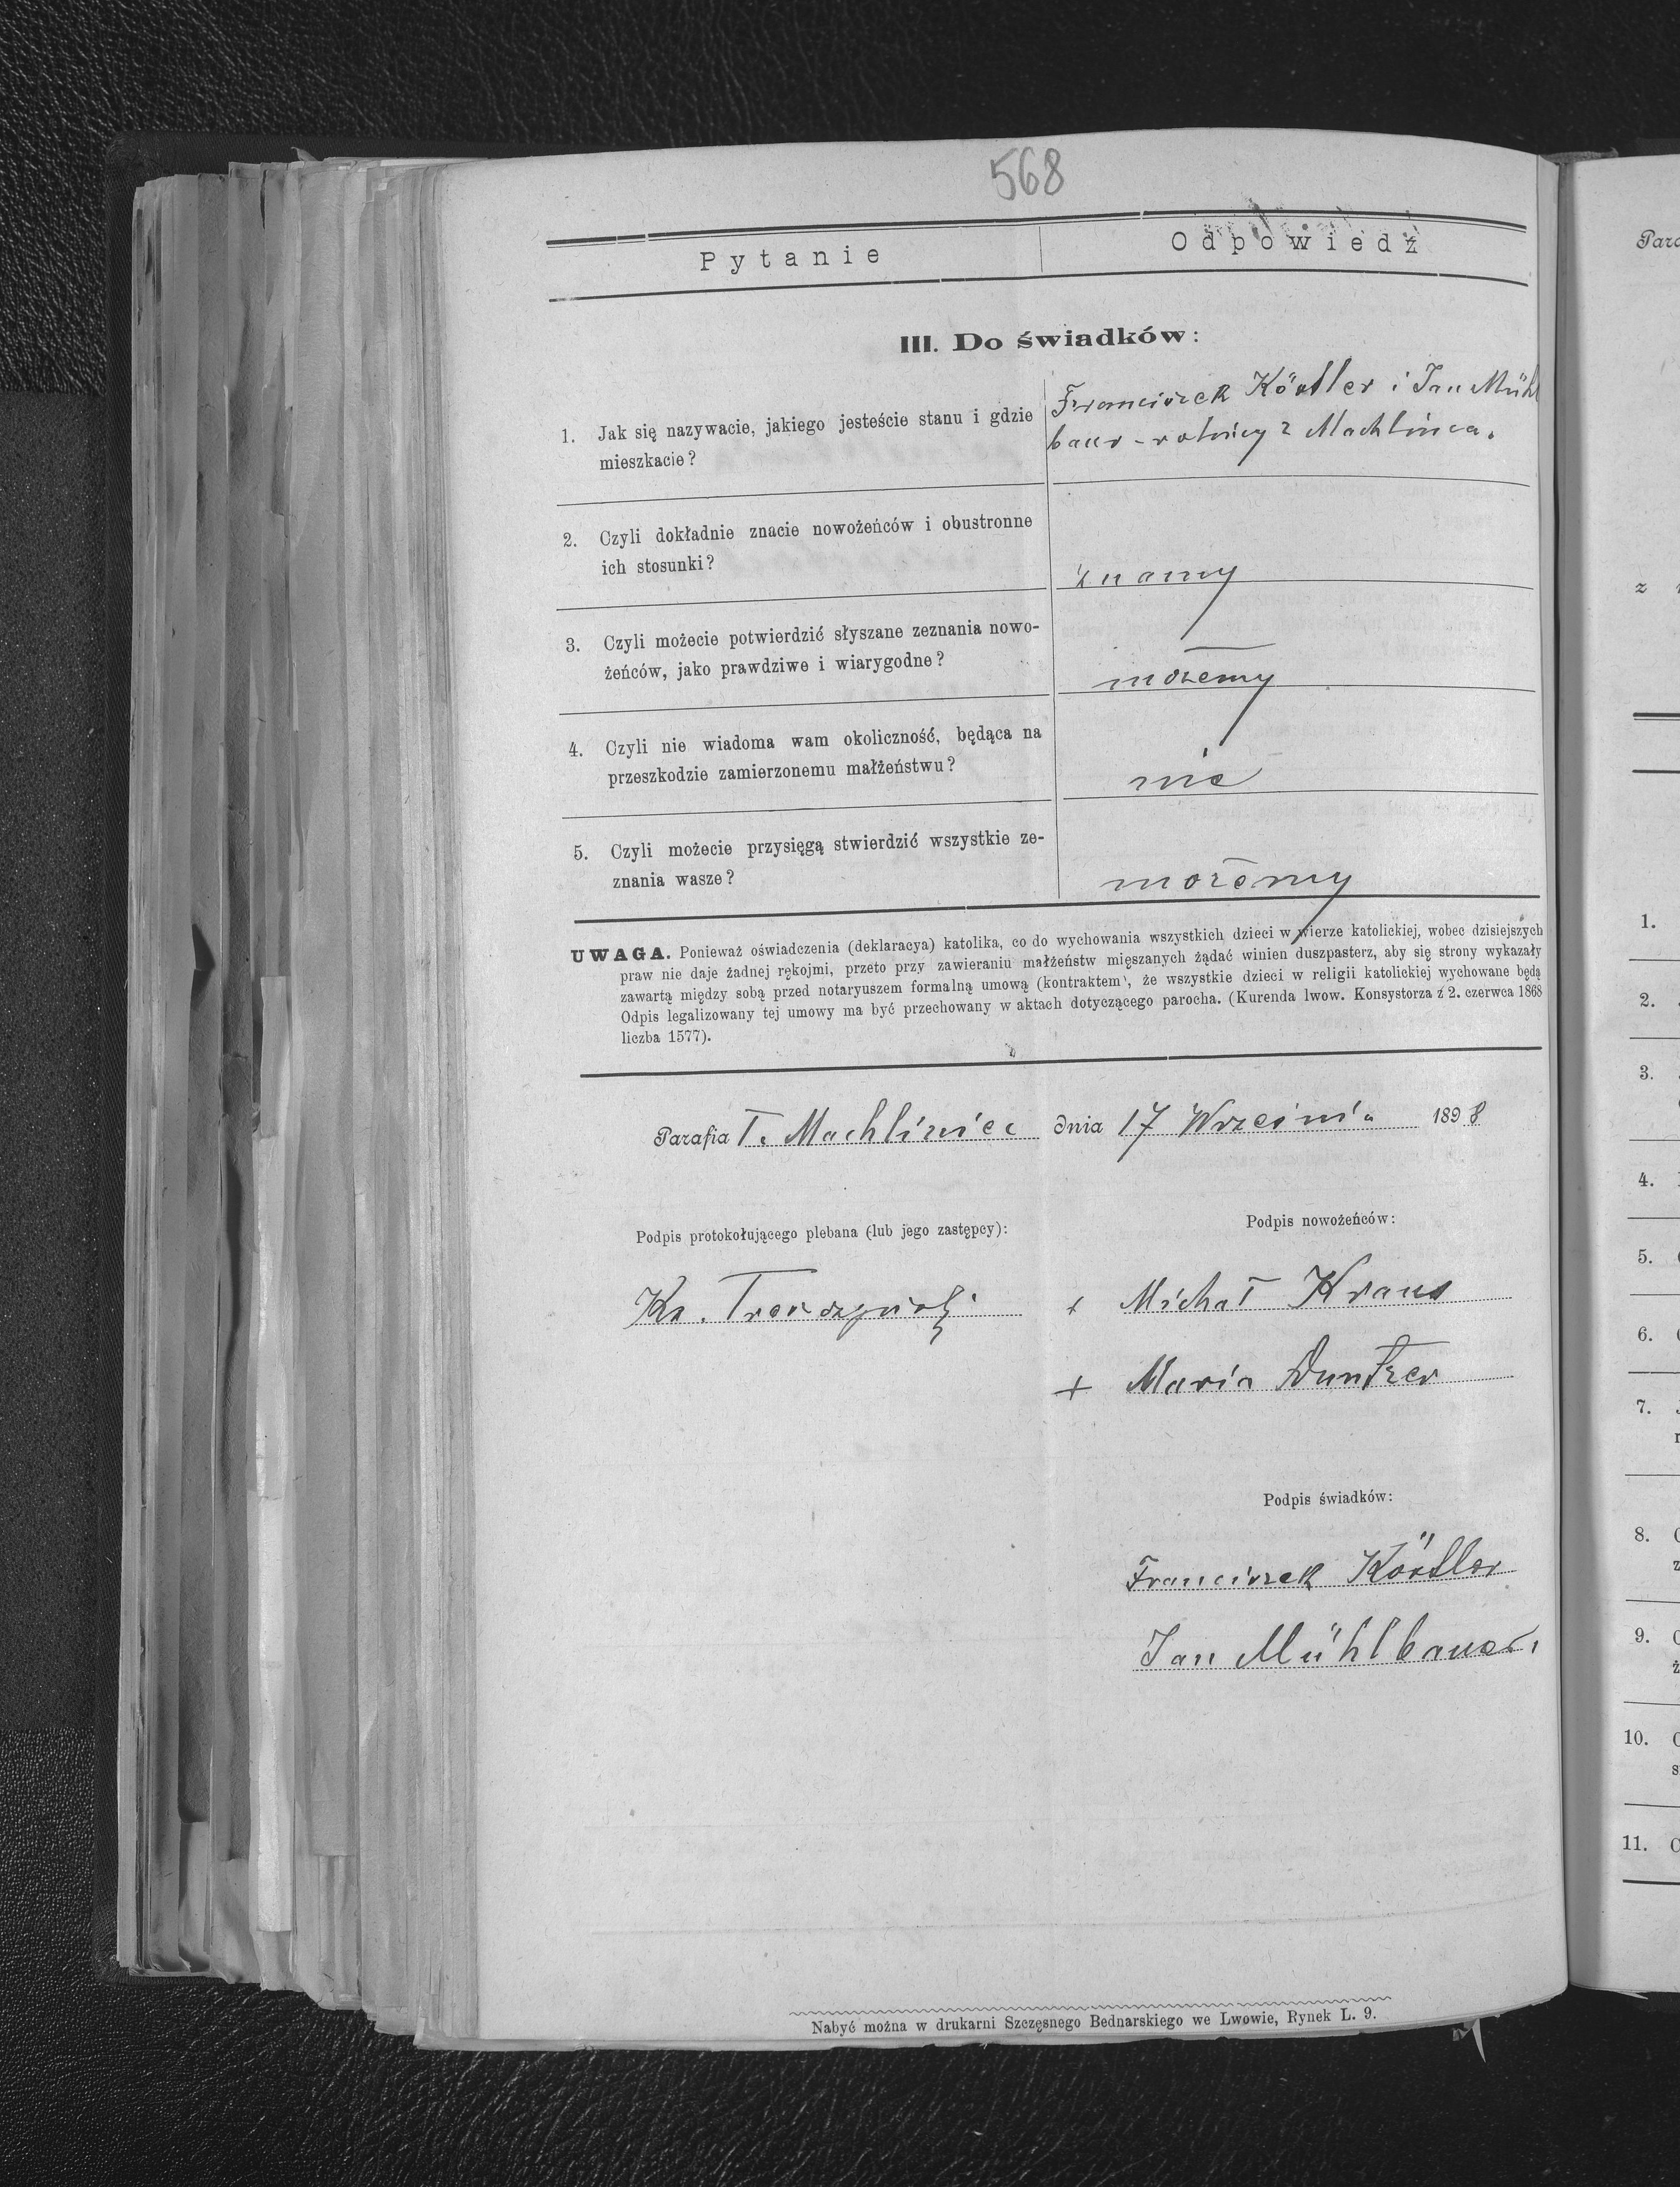 568
Pytanie
Odpowiedź
III. Do świadków:
1. Jak się nazywacie, jakiego jesteście stanu i gdzie
mieszkacie?
Franciszek Köstler i Jan Mühl
baur - rolnicy z Machlińca.
2. Czyli dokładnie znacie nowożeńców i obustronne
ich stosunki?
znamy
3. Czyli możecie potwierdzić słyszane zeznania nowo-
żeńców, jako prawdziwe i wiarygodne?
możemy
4. Czyli nie wiadoma wam okoliczność, będąca na
przeszkodzie zamierzonemu małżeństwu?
nie
5. Czyli możecie przysięgą stwierdzić wszystkie ze-
znania wasze?
możemy
UWAGA. Ponieważ oświadczenia (deklaracya) katolika, co do wychowania wszystkich dzieci w wierze katolickiej, wobec dzisiejszych
praw nie daje żadnej rękojmi, przeto przy zawieraniu małżeństw mięszanych żądać winien duszpasterz, aby się strony wykazały
zawartą między sobą przed notaryuszem formalną umową (kontraktem), że wszystkie dzieci w religii katolickiej wychowane będą
Odpis legalizowany tej umowy ma być przechowany w aktach dotyczącego parocha. (Kurenda lwow. Konsystorza z 2. czerwca 1868
liczba 1577).
Parafia T. Machliniec dnia 17 Września 1898
Podpis protokołującego plebana (lub jego zastępcy):
Podpis nowożeńców:
Ks.
+ Michał Kraus
+ Maria
Podpis świadków:
Franciszek Köstler
Jan Mühlbauer
Nabyć można w drukarni Szczęsnego Bednarskiego we Lwowie, Rynek L. 9.
Para
z
1.
2.
3.
4.
5.
6.
7.
8.
9.
10.
11.